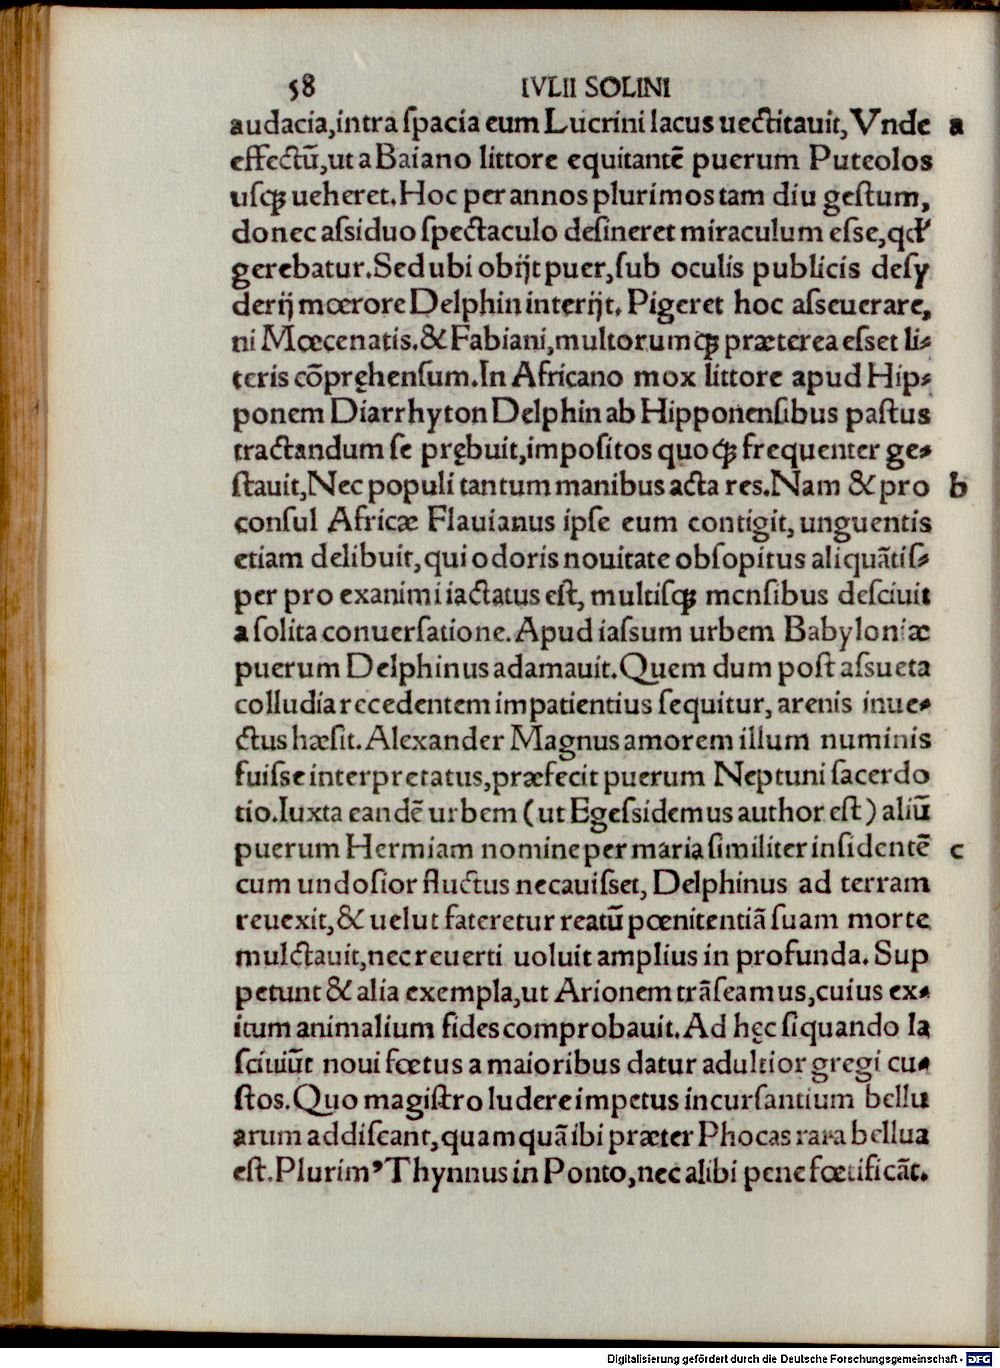 58 IVLII SOLINI
audacia,intra ſpacia eum Lucrini lacus uectitauit, Vnde a
effectũ,ut a Baiano littore equitantẽ puerum Puteolos
uſqꝫ ueheret.Hoc per annos plurimos tam diu geſtum,
donec aſsiduo ſpectaculo deſineret miraculum eſse,qď
gerebatur.Sed ubi obijt puer,ſub oculis publicis deſy
derij mœrore Delphin interijt. Pigeret hoc aſseuerare,
ni Mœcenatis.& Fabiani,multorumqꝫ præterea eſset li⸗
teris cõpręhenſum.In Africano mox littore apud Hip⸗
ponem Diarrhyton Delphin ab Hipponenſibus paſtus
tractandum ſe prębuit,impoſitos quoqꝫ frequenter ge⸗
ſtauit,Nec populi tantum manibus acta res.Nam & pro b
conſul Africæ Flauianus ipſe eum contigit, unguentis
etiam delibuit,qui odoris nouitate obſopitus aliquãtiſ⸗
per pro exanimi iactatus eſt, multiſqꝫ menſibus deſciuit
a ſolita conuerſatione.Apud iaſsum urbem Babyloniæ
puerum Delphinus adamauit.Quem dum poſt aſsueta
colludia recedentem impatientius ſequitur, arenis inue⸗
ctus hæſit.Alexander Magnus amorem illum numinis
fuiſse interpretatus,præfecit puerum Neptuni ſacerdo
tio.Iuxta eandẽ urbem (ut Egeſsidemus author eſt) aliũ
puerum Hermiam nomine per maria ſimiliter inſidentẽ c
cum undoſior fluctus necauiſset, Delphinus ad terram
reuexit,& uelut fateretur reatũ pœnitentiã ſuam morte
mulctauit,nec reuerti uoluit amplius in profunda. Sup
petunt & alia exempla,ut Arionem trãſeamus,cuius ex⸗
itum animalium fides comprobauit.Ad hęc ſiquando la
ſciuiũt noui fœtus a maioribus datur adultior gregi cu⸗
ſtos.Quo magiſtro ludere impetus incurſantium bellu
arum addiſcant,quamquã ibi præter Phocas rara bellua
eſt.Plurimꝰ Thynnus in Ponto,nec alibi pene fœtificãt.
Digitalisierung gefördert durch die Deutsche Forschungsgemeinschaft - DFG